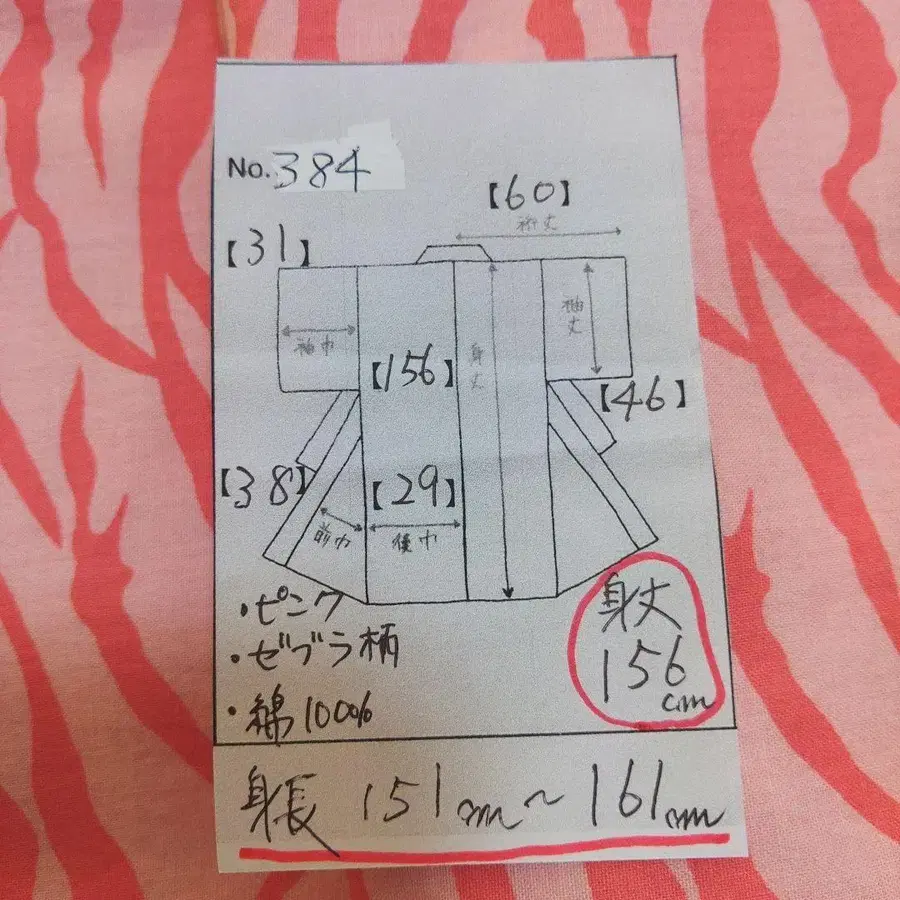 No.384
【60】
裄丈
【31】
袖巾
袖丈
身丈
【156】
【46】
【38】
【29】
前巾
後巾
・ピンク
・ゼブラ柄
・綿100%
身丈
156
cm
身長 151cm～161cm